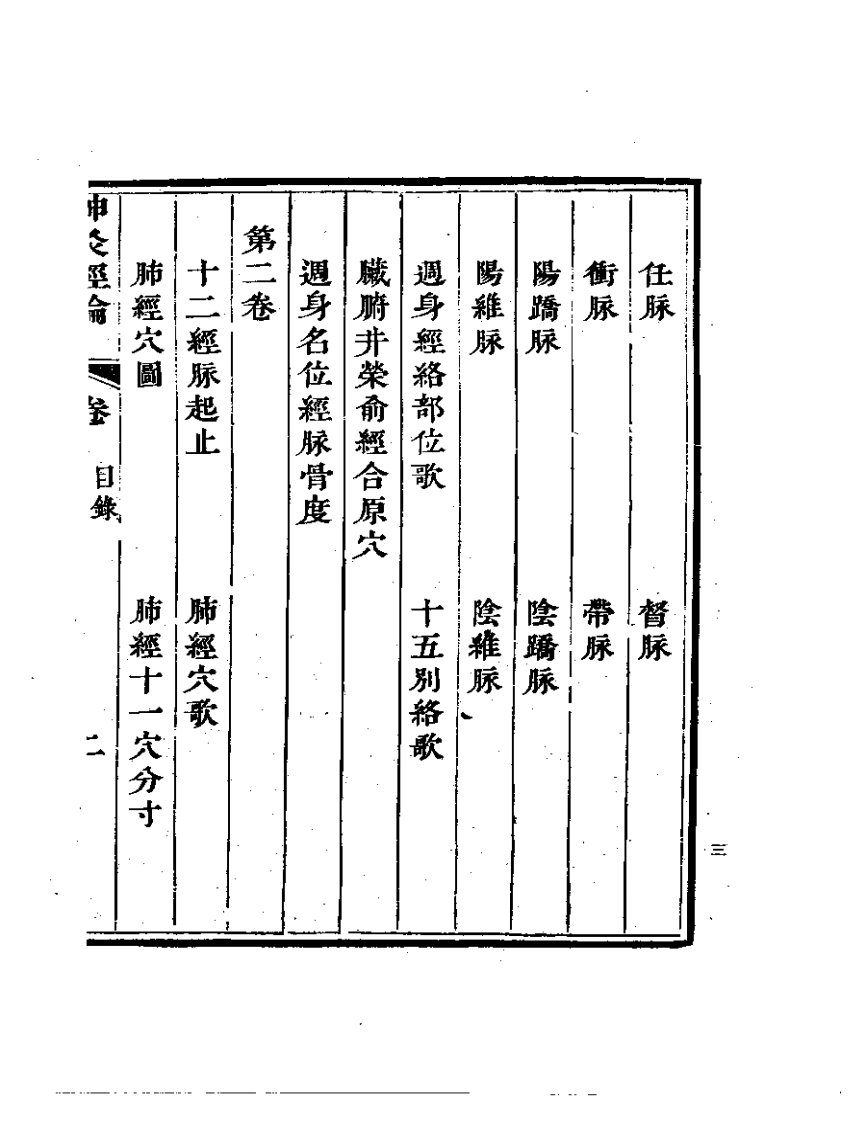 任脉　督脉
衝脉　帶脉
陽蹻脉　陰蹻脉
陽維脉　陰維脉
週身經絡部位歌　十五別絡歌
臟腑井榮俞經合原穴
週身名位經脉骨度
第二卷
十二經脉起止　肺經穴歌
肺經穴圖　肺經十一穴分寸
灸經論　卷　目錄　二
三